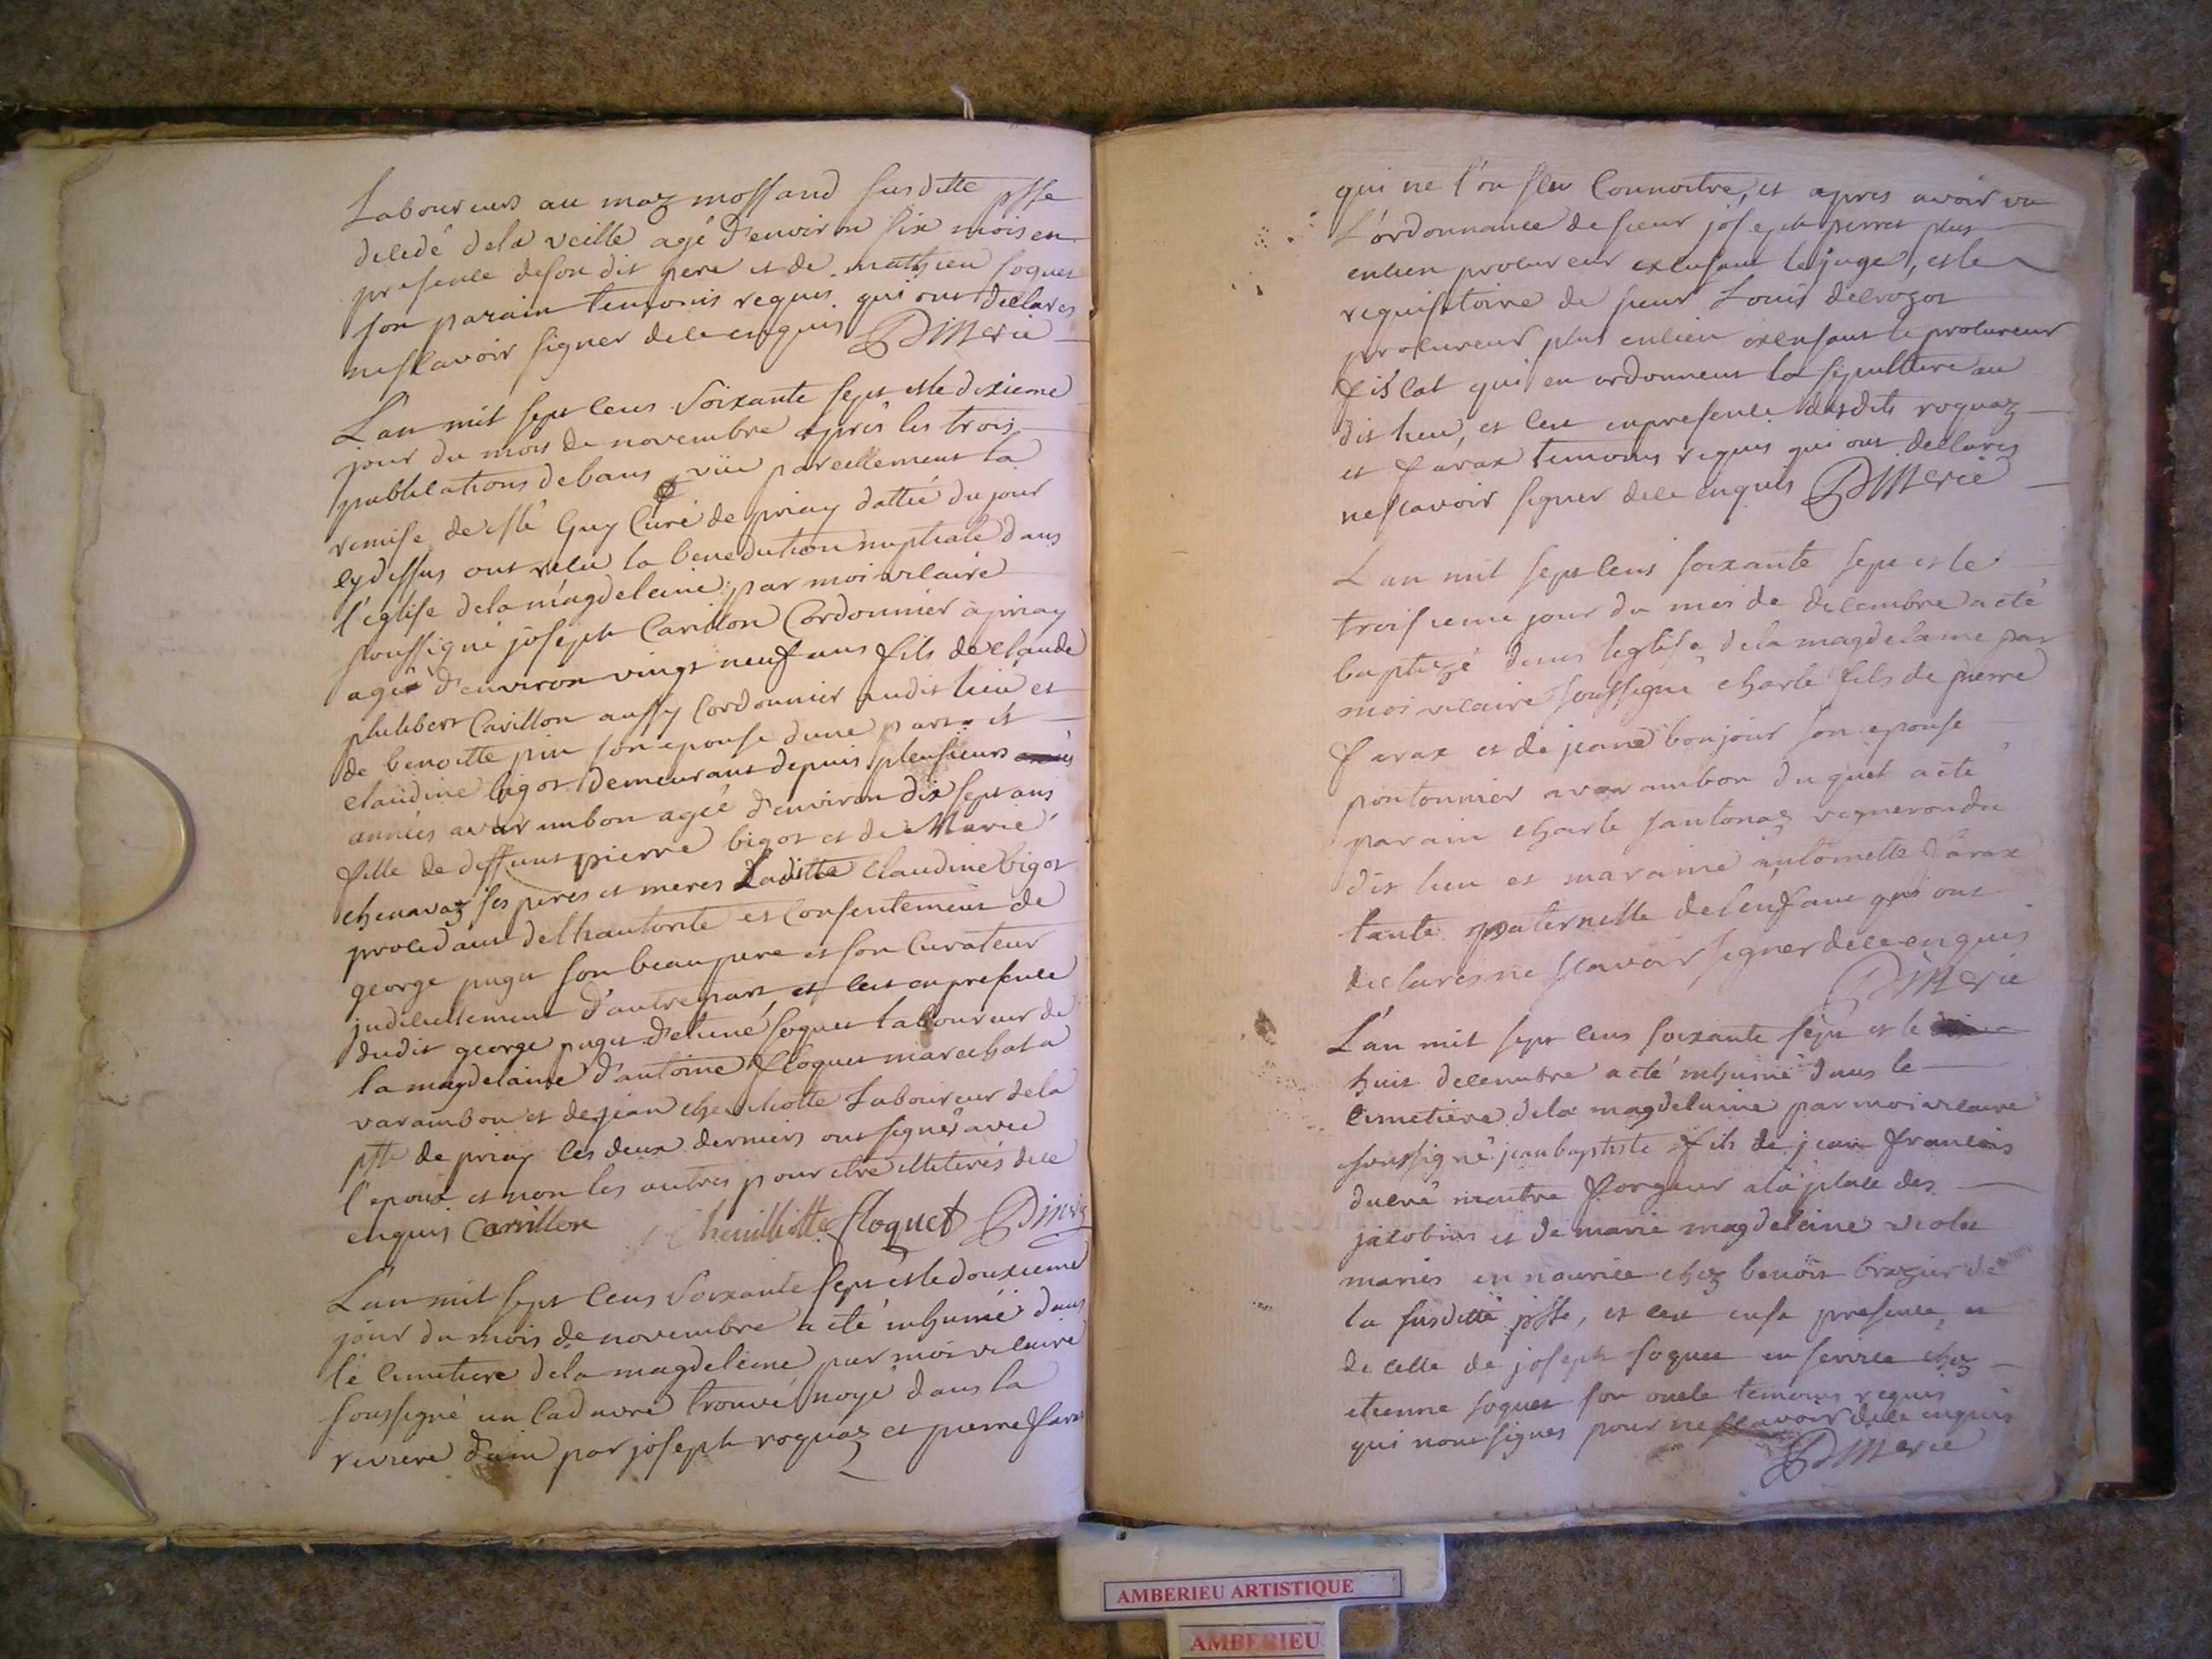 Laboureurs au maz mossand susditte psse
decedé dela veille agé d'environ six mois en
presence deson dit pere et de mathieu soquet
son parain temonis requis qui ont declarés
nescavoir signer dece enquis DiMerie
L'an mil sept cens soixante sept et le dixieme
jour du mois de novembre après les trois
publications debans vüe pareillement la
remise de Guy Curé de priay dattée du jour
cydessus ont recu la benediction nuptiale dans
l'eglise dela magdeleine par moi vicaire
soussigné joseph Carillon Cordonnier à priay
agé d'environ vingt neuf ans fils de claude
philibert Carillon aussy Cordonnier audit lieu et
de benoitte pin son epouse dune part et
claudine bigot demeurant depuis plusieurs
années avarambon agée d'environ dix sept ans
fille de deffunt pierre bigot et de Marie
chenavaz ses peres et meres Laditte claudine bigot
procedant del'hautorité et consentement de
george puget son beaupere et son curateur
judiciellement d'autre part et ce en presence
dudit george puget d'etiené soquet laboureur de
la magdelaine d'antoine floquet marechal a
varambon et dejean chevilliotte Laboureur dela
psse de priay les deux derniers ont signés avec
l'epoux et non les autres pour etre illiterés dece
enquis Carrillon Chevilliotte floquet DiMerie
L'an mil sept cens soixante sept et le douxieme
jour du mois de novembre a eté inhumé dans
le cimetiere dela magdeleine par moi vicaire
soussigné un cadavre trouvé noyé dans la
riviere d'ain par joseph roquaz et pierre farax
qui ne l'on sceu Connoitre, et apres avoir vu
L'ordonnance de sieur joseph perret plus
encien procureur excusant le juge, et le
requisitoire de sieur Louis delrogot
procureur plus encien excusant le procureur
fiscal qui en ordonnent la sepulture au
dit lieu, et ceu en presence desdits roquaz
et farax temonis requis qui ont declarés
nescavoir signer dece enquis DiMerie
L an mil sept cens soixante sept et le
troisieme jour du moi de decembre a eté
baptizé dans leglise dela magdelaine par
moi vicaire soussigné charle fils de pierre
farax et de jeane bonjour son epouse
pontonnier avarambon duquel a eté
parain charle santonaz vigneron du
dit lieu et maraine antoinette farax
tante paternelle de l'enfant qui ont
declarés ne scavoir signer dece enquis
DiMerie
L'an mil sept cens soixante sept et le
huit decembre a eté inhumé dans le
cimetiere dela magdelaine par moi vicaire
soussigné jeanbaptiste fils de jean francois
ducré maitre forgeur a la place des
jacobins et de marie magdeleine violet
mariés en nourice chez benoit brazier de
la susditte psse, et ceu en sa presence et
de celle de joseph soquet en service chez
etienne soquet son oncle temonis requis
qui nont signés pour ne scavoir dece enquis
DiMerie
AMBERIEU ARTISTIQUE
AMBERIEU